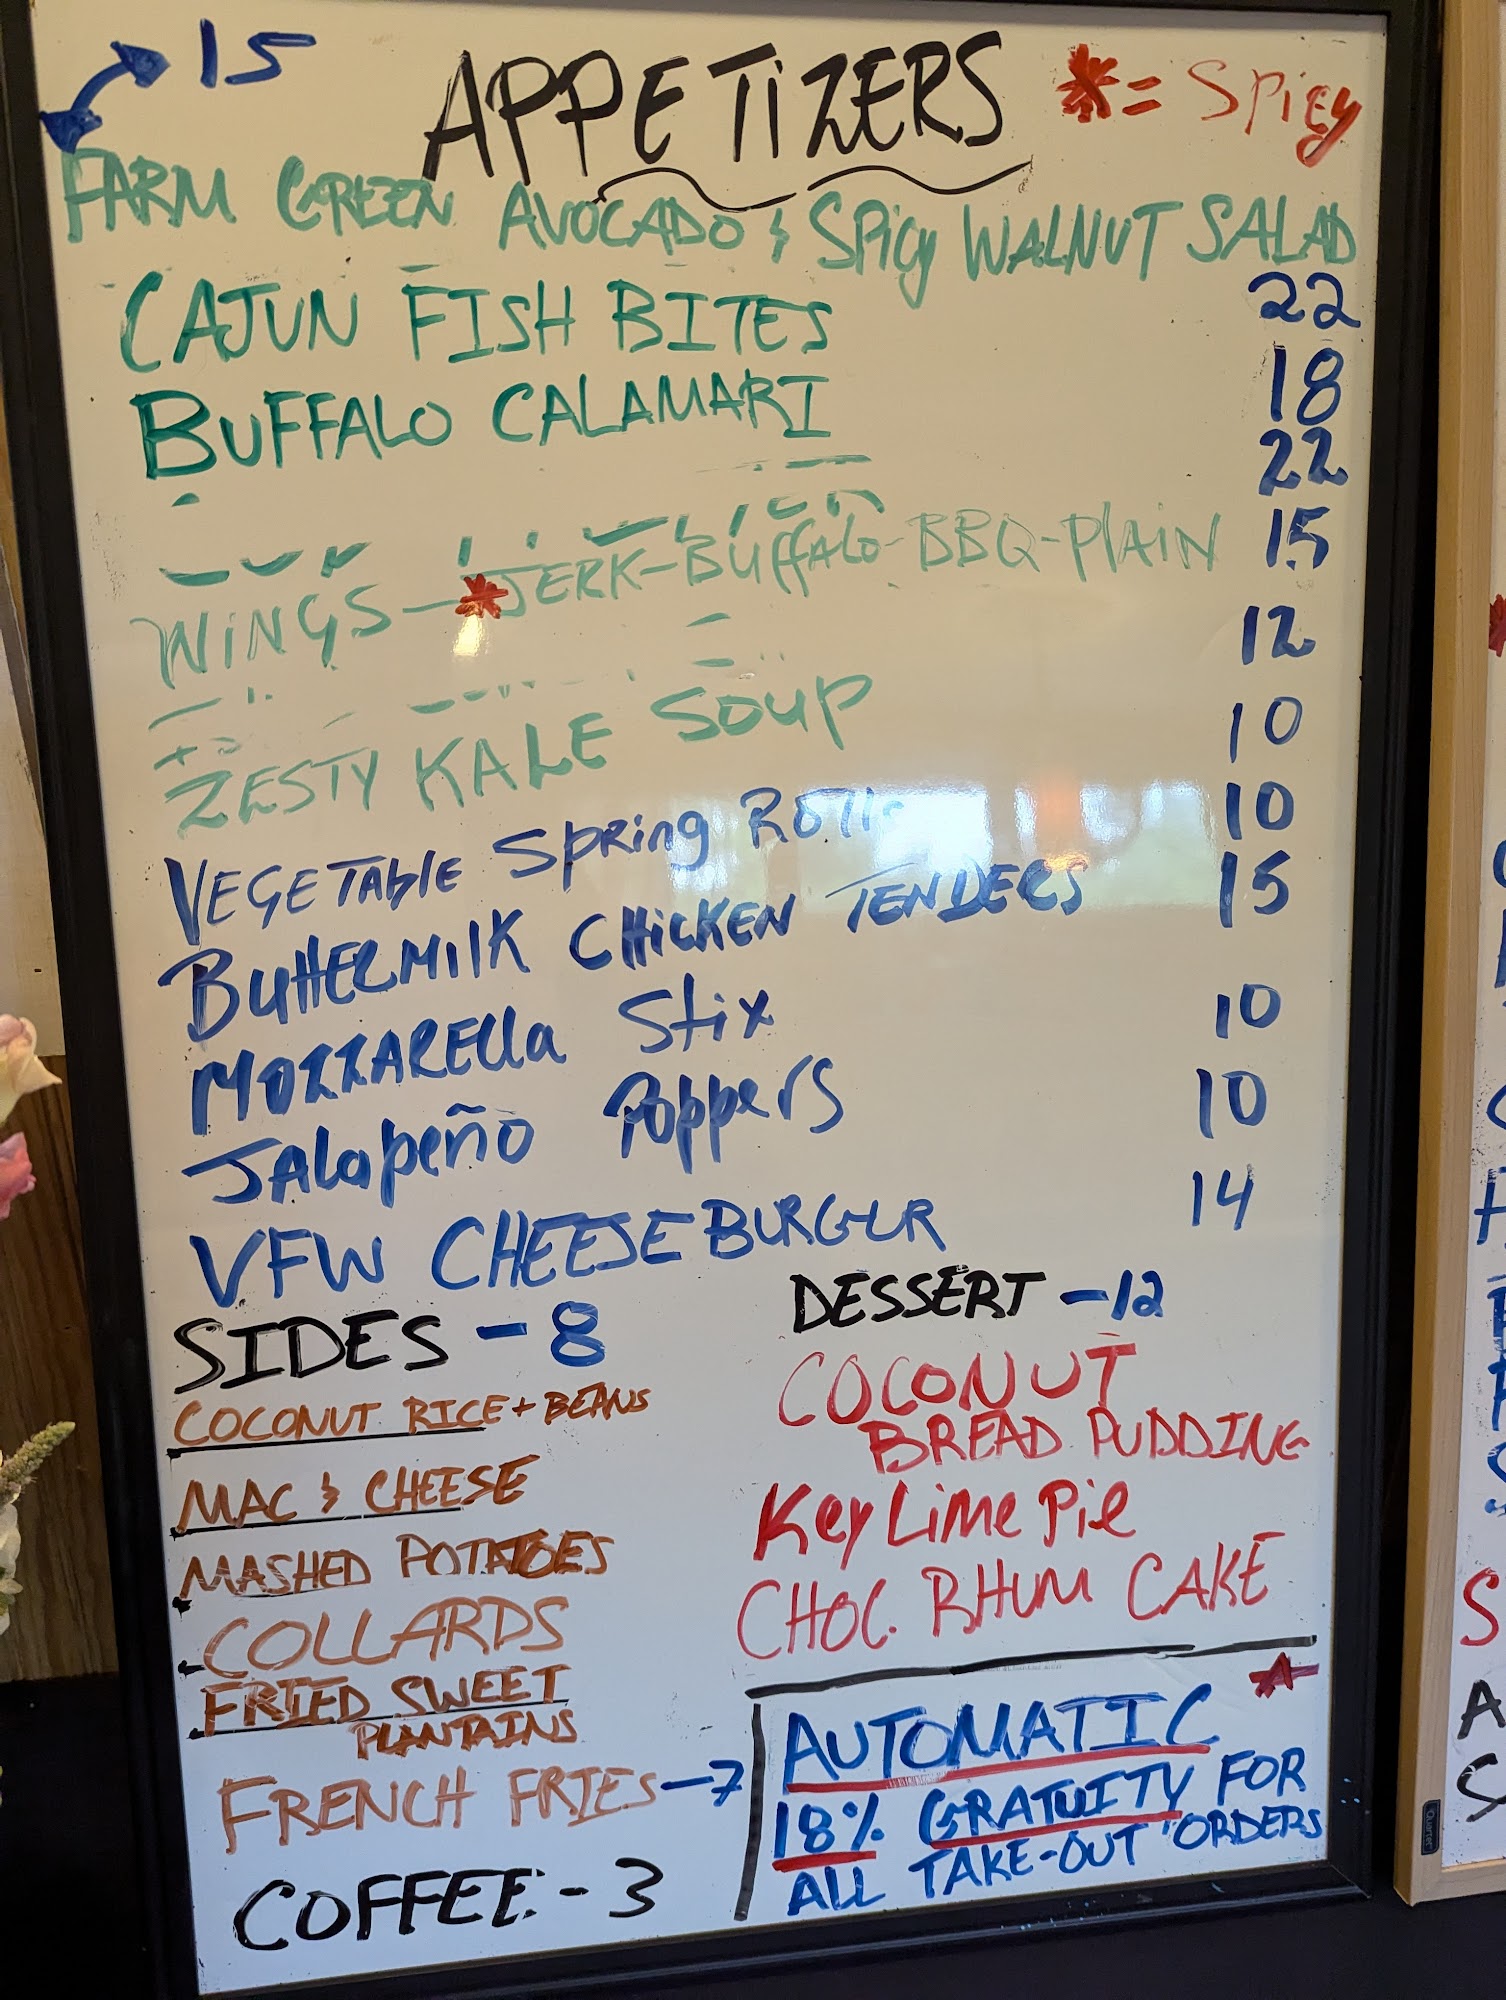 15
APPETIZERS
*= Spicy
FARM GREEN AVOCADO & SPicy WALNUT SALAD
CAJUN FISH BITES 22
BUFFALO CALAMARI 18
22
WINGS - *JERK-Buffalo-BBQ-PlAiN 15
12
ZESTY KALE SOUP 10
VEGETAblE Spring Rolls 10
ButtERMilK CHiCKEN TENDERS 15
MOZZARElla Stix 10
JALapeño Poppers 10
VFW CHEESEBURGER 14
SIDES - 8
COCONUT RICE + BEANS
MAC & CHEESE
MASHED POTATOES
COLLARDS
FRIED SWEET
PLANTAINS
FRENCH FRIES - 7
COFFEE - 3
DESSERT - 12
COCONUT
BREAD PUDDING
Key Lime Pie
CHOC. RHUM CAKE
AUTOMATIC
18% GRATUITY FOR
ALL TAKE-OUT ORDERS